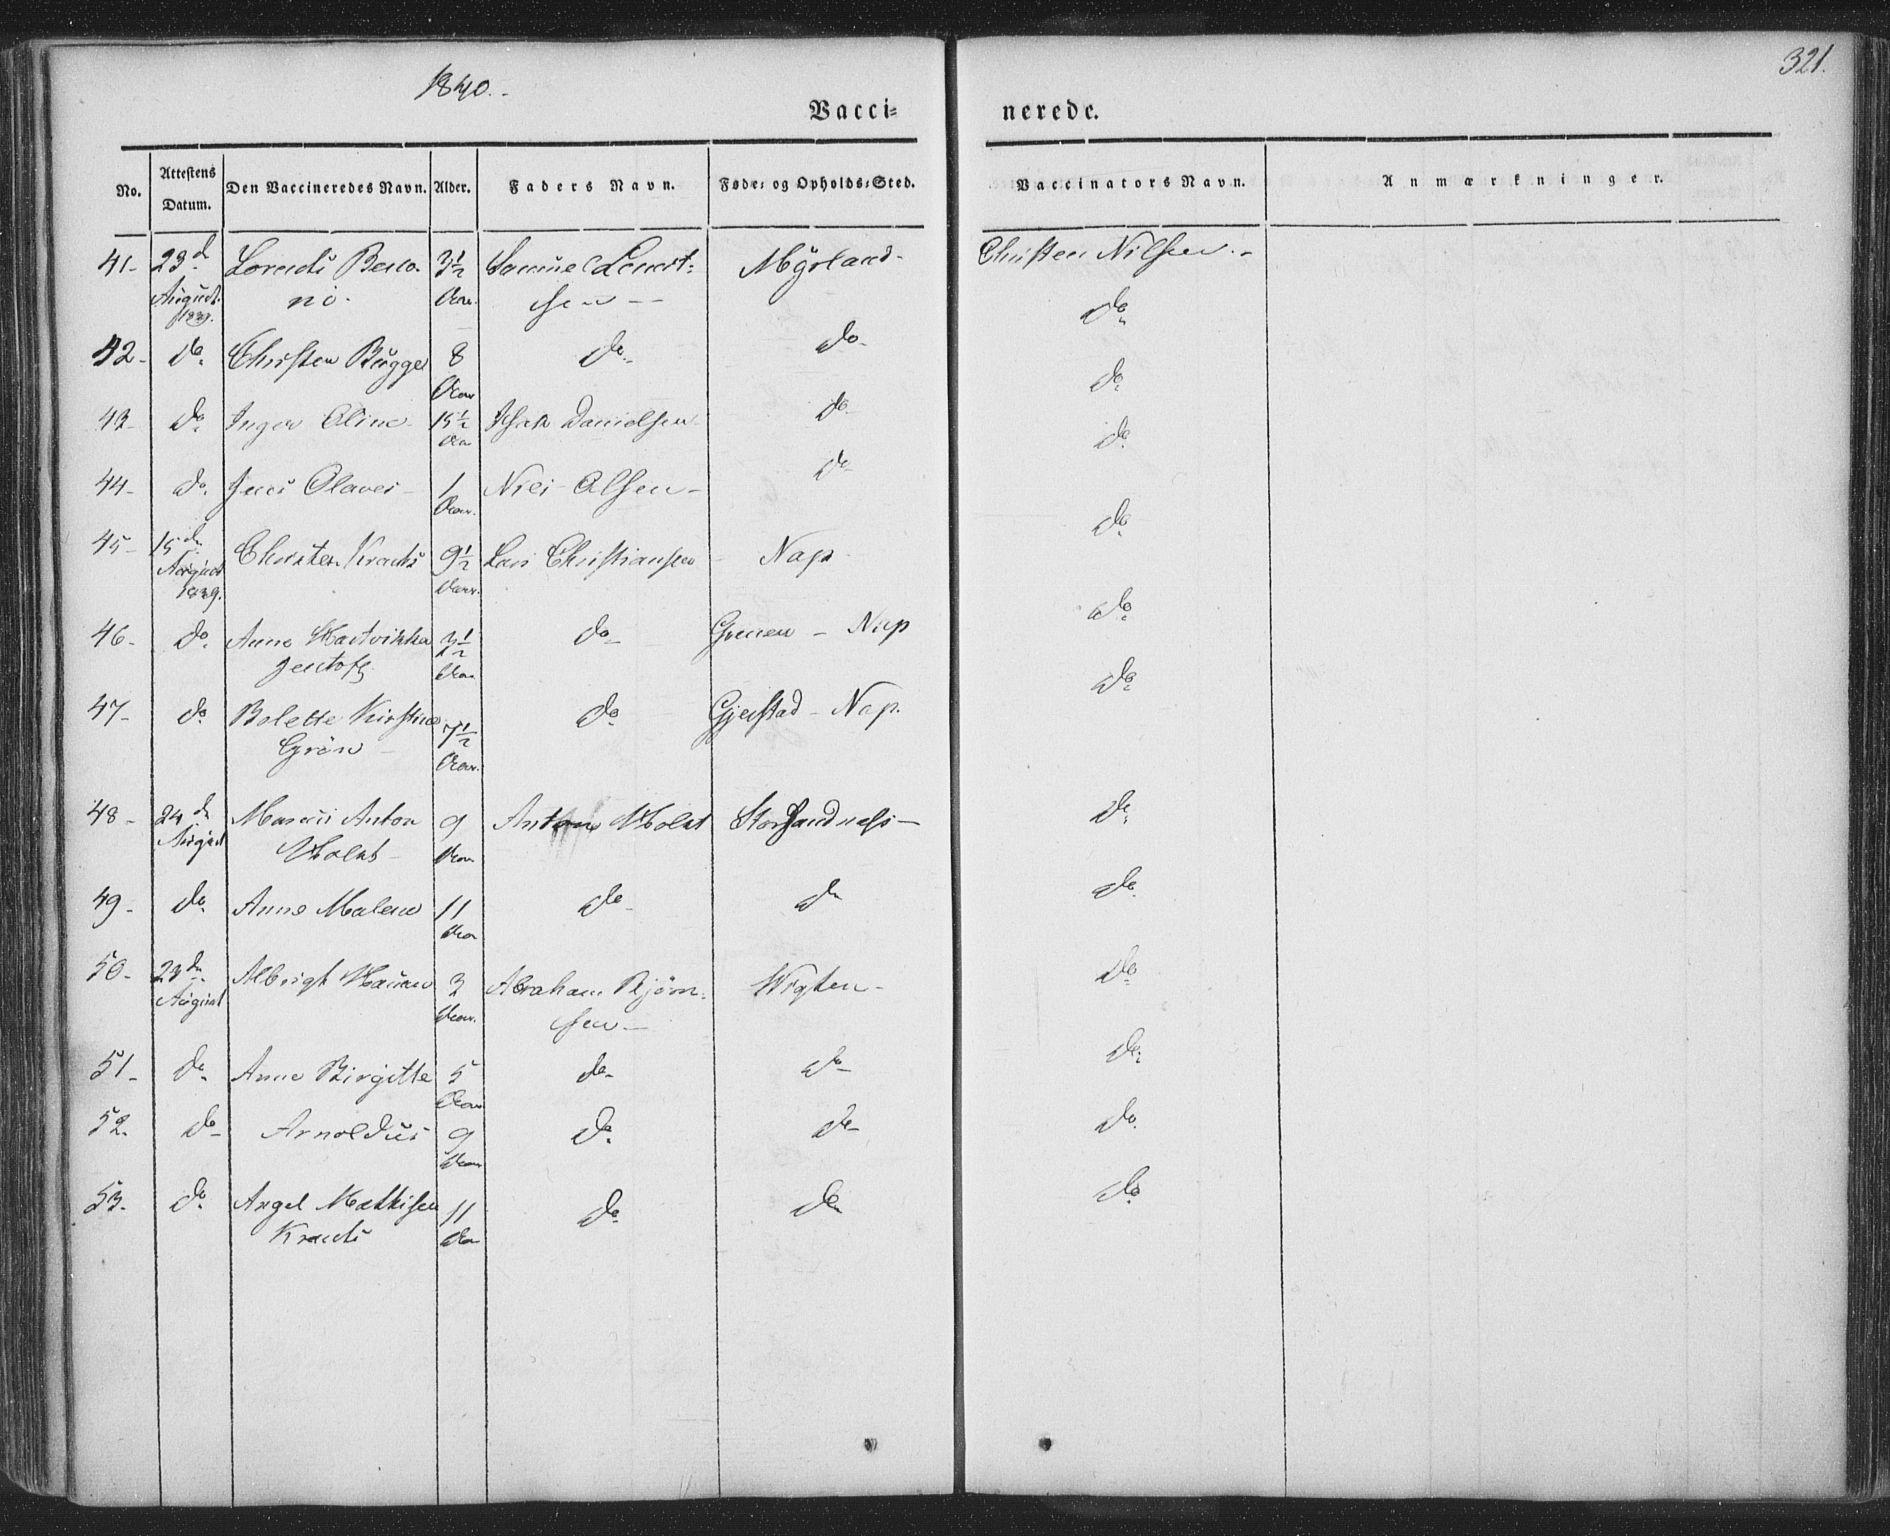 1840.
321.
Vacci= nerede.
No. Attestens Datum. Den Vaccineredes Navn. Alder. Faders Navn. Føde= og Opholds=Sted. Vaccinators Navn. Anmærkninger.
41- 23d Lorents Beno= 3½ Samuel Myrland- Christen Nilsen.-
August 1839. ni. Aar. sen --
42- do Christen Bugge 8 do- do- do
Aar
43- do Inger Oline 15½ Isak Danielsen do- do
Aar
44- do. Jens Olaves- 1 Niels Olsen- do- do
Aar.
45- 15de Christen Krants 9½ Lars Christiansen Nap- do
August 1839. Aar.
46- do. Anne Hartvikka 3½ do- - Nap do
Jentoft Aar
47- do Bolette Kirstine 7½ do Gjerstad - Nap. do
Grön- Aar.
48- 24de Marcus Anton 9 Anton Holst Storsandness- do
August Holst- Aar
49- do. Anne Malene 11 do- do do
Aar
50- 23de Albrigt Hauan 3 Abraham Bjørn= Wigten- do
August Aar. sen-
51- do- Anne Birgitte 5 do- do- do
Aar
52. do- Arnoldus 9 do. do- do
Aar
53. do. Angel Mathisen 11 do do do
Krants Aar